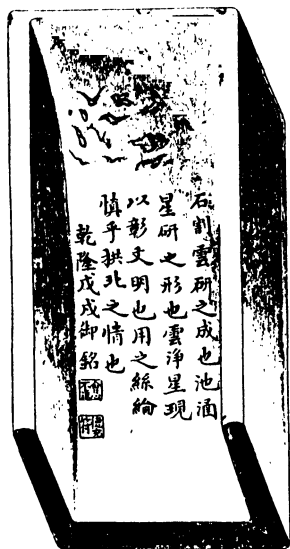 石割雲研之成也池涵
星研之形也雲淨星現
以彰文明也用之絲綸
慎乎拱北之情也
乾隆戊戌御銘